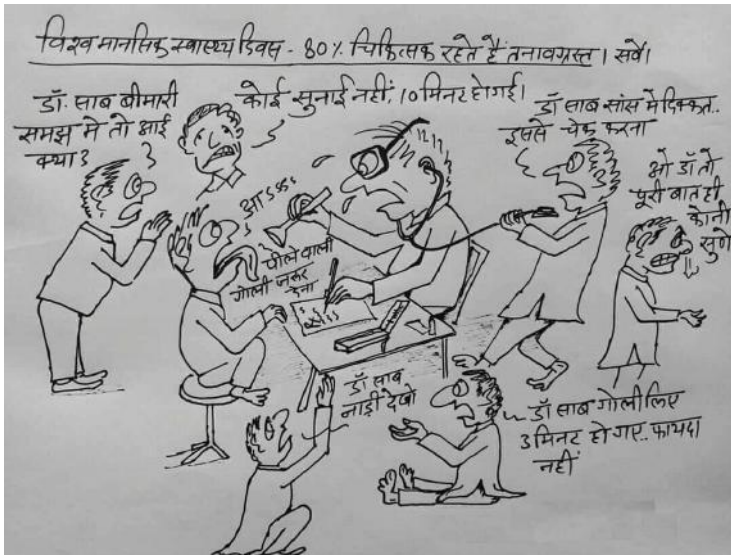 विश्व मानसिक स्वास्थ्य दिवस - 80% चिकित्सक रहते हैं तनावग्रस्त। सर्वे।
डॉ. साब बीमारी
समझ मे तो आई
क्या?
कोई सुनाई नहीं, 10 मिनट हो गई।
डॉ साब सांस मे दिक्कत..
इससे चेक करना
ओ डॉ तो
पूरी बात ही
कोनी
सुणे
आ ऽऽऽ
पीले वाली
गोली जरूर
देना
डॉ साब
नाड़ी देखो
डॉ साब गोली लिए
3 मिनट हो गए.. फायदा
नहीं